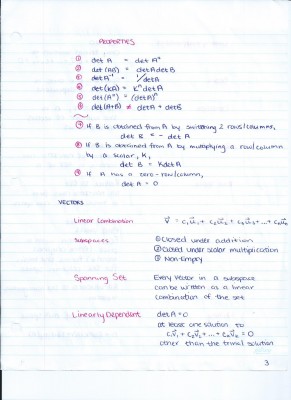 PROPERTIES
① det A = det Aᵀ
② det (AB) = det A det B
③ det A⁻¹ = 1/det A
④ det (kA) = kⁿ det A
⑤ det (Aⁿ) = (det A)ⁿ
⑥ det (A+B) ≠ det A + det B
⑦ If B is obtained from A by switching 2 rows/columns,
det B = - det A
⑧ If B is obtained from A by multiplying a row/column
by a scalar, K,
det B = Kdet A
⑨ If A has a zero-row/column,
det A = 0
VECTORS
Linear Combination v⃗ = c₁u⃗₁ + c₂u⃗₂ + c₃u⃗₃ ... + cₙu⃗ₙ
Subspaces ① Closed under addition
② Closed under scalar multiplication
③ Non-Empty
Spanning Set Every vector in a subspace
can be written as a linear
combination of the set
Linearly Dependent det A = 0
at least one solution to
c₁v⃗₁ + c₂v⃗₂ + ... + cₙv⃗ₙ = 0
other than the trivial solution
3